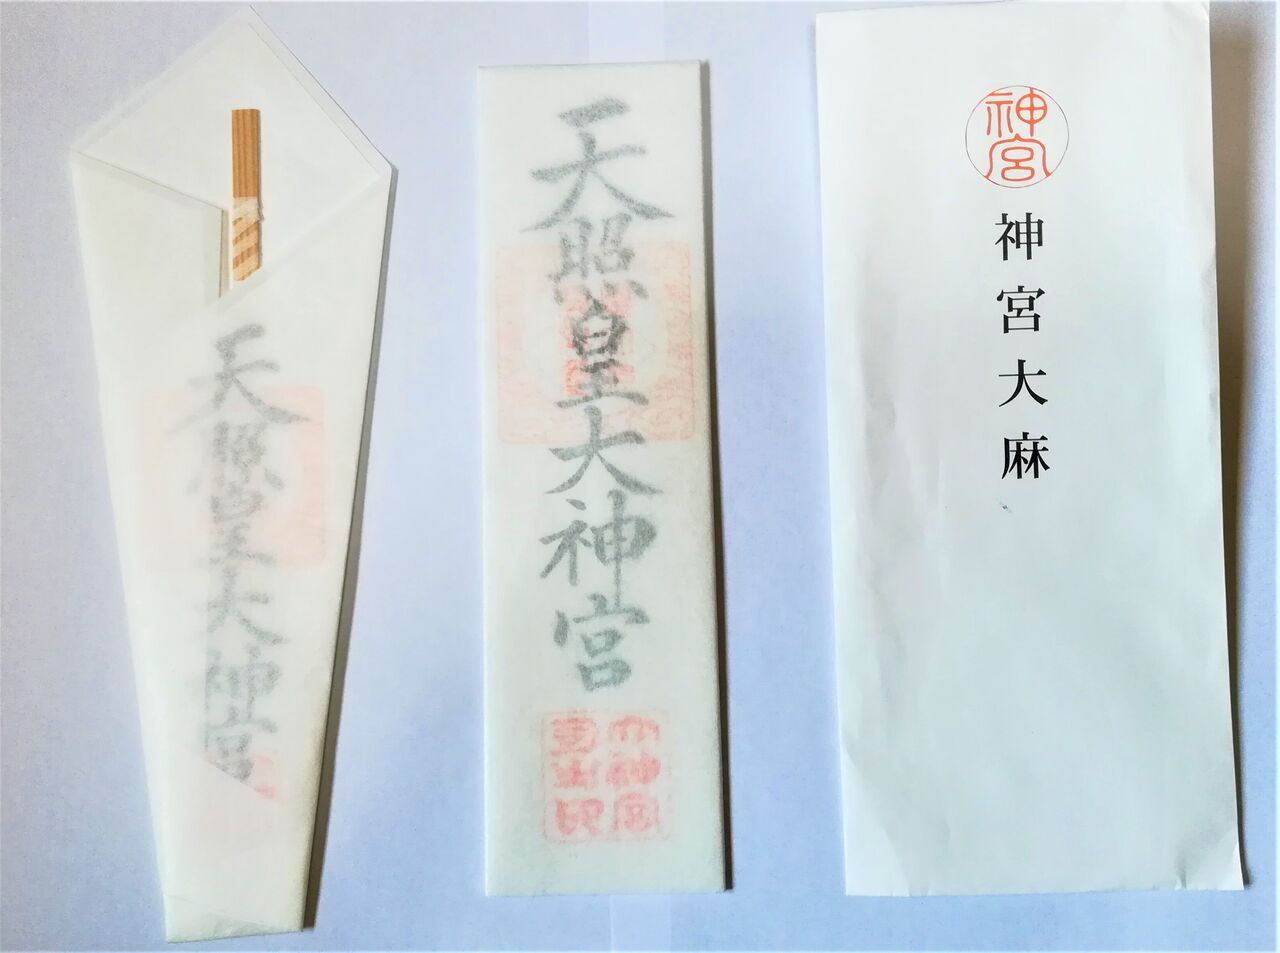 天照皇大神宮
天照皇大神宮
大神宮
司之印
神宮
神宮大麻